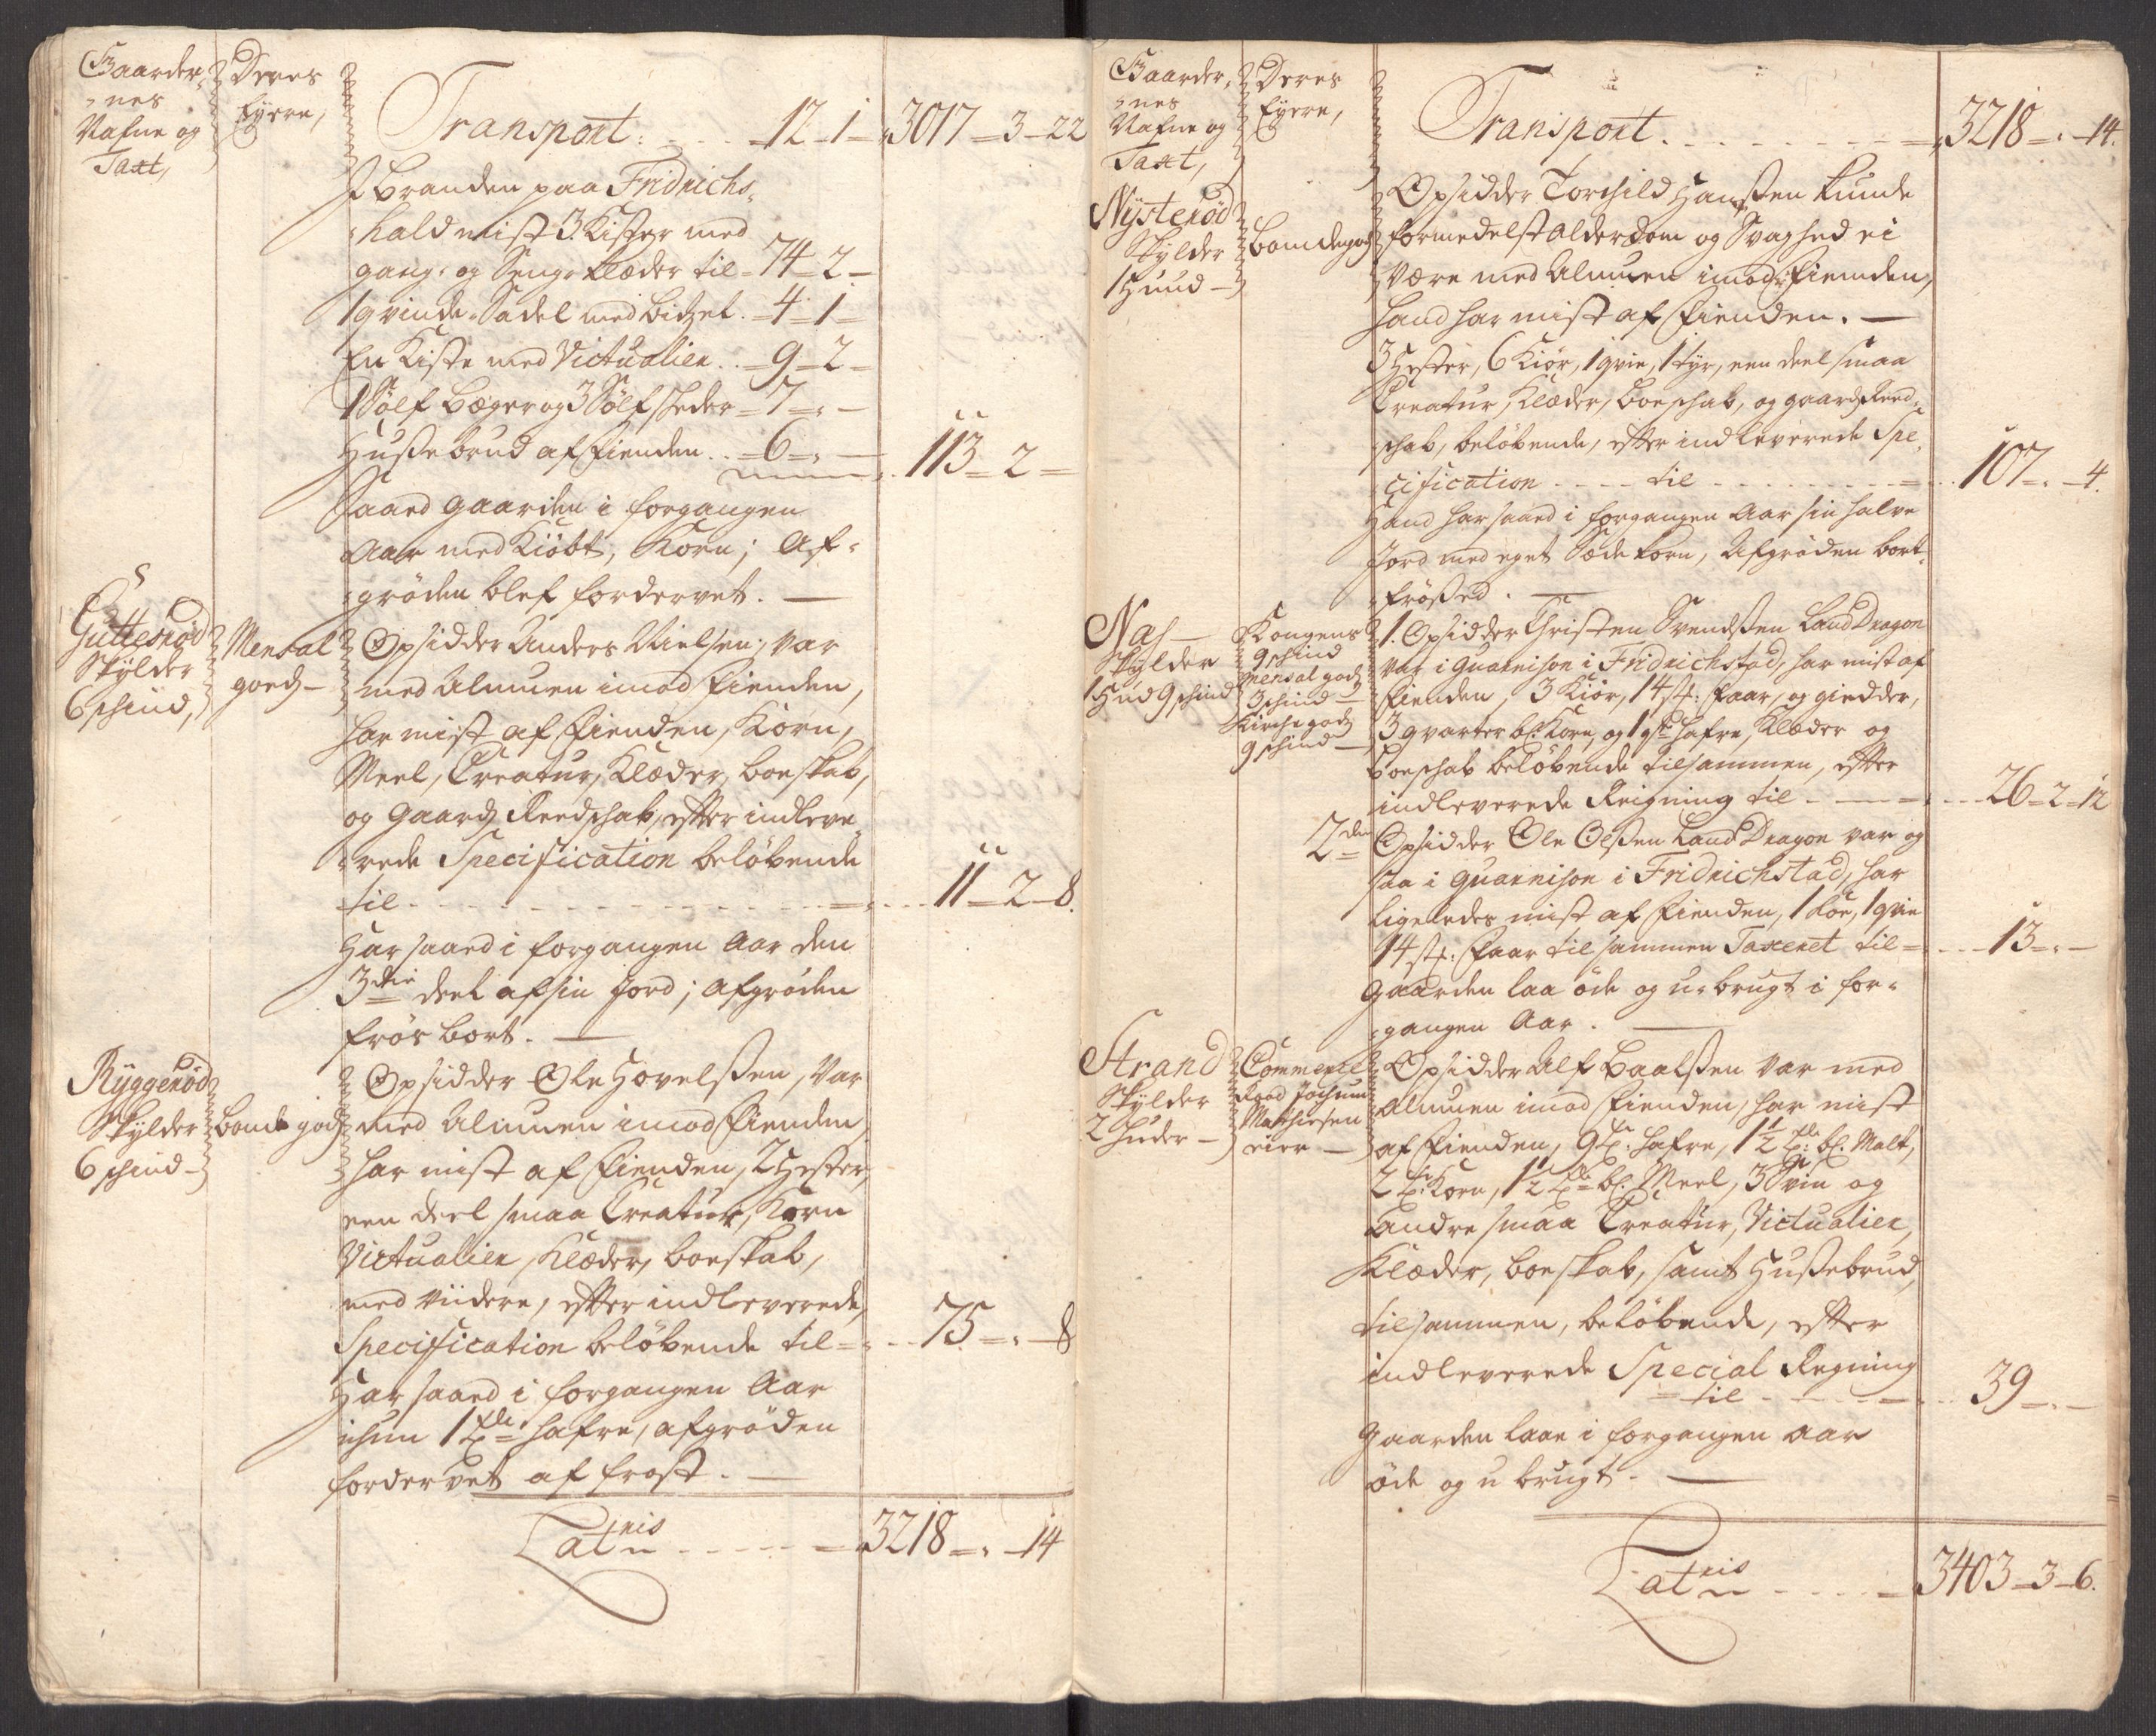 Gaarder-
-nes
Nafne og
Taxt,
Deres
Eyere,
Transport: - - - - 12 - 1 - 3017 - 3 - 22
I branden paa Fridrichs-
hald mist 3 Kister med
gang- og Senge klæder til - 74 - 2 -
1 qvinde Sadel med bitzel - 4 - 1 -
En Kiste med Victualier - 9 - 2 -
1 Sölf bæger og 3 Sölf skeder - 7 - -
Hussebrud af Fienden - 6 - - 113 - 2 -
Saaed gaarden i forgangen
Aar med Kiöbt, Korn; Af-
gröden blef fordervet. -
Guttenröd
Skylder
6 skind,
Mensal
goeds -
Opsidder Anders Nielsen; var
med Almuen imod Fienden,
har mist af Fienden, Korn,
Meel, Creatur, Klæder, boeskab,
og Gaards Reedschab, efter indleve-
rede Specification beløbende
til - - - - - 11 - 2 - 8.
Har saaed i forgangen Aar den
3die deel af sin Jord; afgröden
frös bort. -
Ryggeröd
Skylder
6 skind -
bonde gods
Opsidder Ole Hovelssen, var
med Almuen imod Fienden
har mist af Fienden, 2 Hester,
een deel smaa Creatur, Korn
Victualier, Klæder, boeskab,
med videre, efter indleverede,
Specification beløbende til - - 75 - - 8
Har saaed i forgangen Aar
ichun 1 Tde hafre, afgröden
fordervet af frost. -
Latnis - - - - 3218 - - 14
Gaarder-
-nes
Nafne og
Taxt,
Deres
Eyere,
Transport. - - - - 3218 - - 14.
Nysteröd
Skylder
1 Huud -
bondegods
Opsidder Torchild Hanssen kunde
formedelst alderdom og Svaghed ei
være med Almuen imod Fienden,
hand har mist af Fienden. -
3 Hester, 6 Kiör, 1 qvie, 1 tyr, een deel smaa
Creatur, Klæder, boeschab, og gaards Reed-
schab, beløbende, efter indleverede Spe-
cification - - - til - - - - 107 - - 4.
Hand har saaed i forgangen Aar sin halve
Jord med eget Sæde korn, Afgröden bort-
frössed. -
Nas -
Skylder
1 Hud 9 skind
Kongens
9 skind
Mensal gods
3 skind -
Kirche gods
9 skind -
1. Opsidder Christen Svendsen Land Dragon
var i Guarnison i Fridrichstad, har mist af
Fienden, 3 Kiör, 14 st: faar, og giedder,
3 qvarter bl: Korn, og 1 qr hafre, Klæder og
boeschab beløbende tilsammen, efter
indleverede Reigning til - - - 26 - 2 - 12
2den Opsidder Ole Olssen Land Dragon var og
saa i Guarnison i Fridrichstad, har
ligeledes mist af Fienden, 1 Koe, 1 qvie
14 st: faar tilsammen Taxeret til - - - 13 - -
Gaarden laa öde og u-brugt i for-
gangen Aar. -
Strand
Skylder
2 huder -
Commerce
Raad Jochum
Mathiesen
eier -
Opsidder Alf Baalssen var med
Almuen imod Fienden, har mist
af Fienden, 9 T. hafre, 1½ Tde bl. Malt,
2 T. Korn, 1½ Tde bl: Meel, 3 Svin og
andre smaa Creatur, Victualier,
Klæder, boeskab, samt Hussebrud,
tilsammen, beløbende, efter
indleverede Special Regning
til - - - - 39 - -
Gaarden laae i forgangen aar
öde og u brugt. -
Latnis - - - - 3403 - 3 - 6.